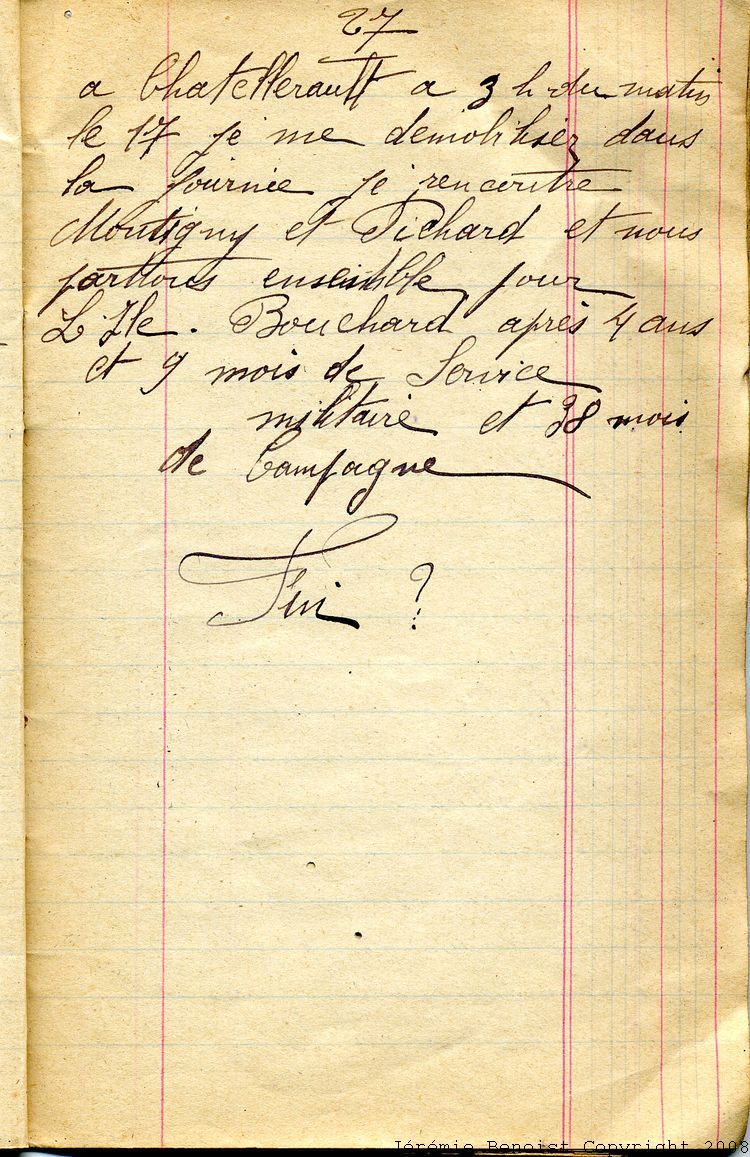 27
a Chatellerault a 3 h du matin
le 17 je me demobilisez dans
la journée je rencontre
Montigny et Pichard et nous
partons ensemble pour
L'Ile. Bouchard après 4 ans
et 9 mois de Service
militaire et 38 mois
de Campagne
Fin ?
Jérémie Benoist Copyright 2008